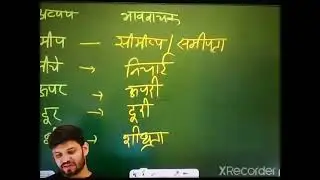 अव्यय भाववाचक
मीप — सामीप्य / समीपता
नीचे → निचाई
ऊपर → ऊपरी
दूर → दूरी
→ शीघ्रता
XRecorder